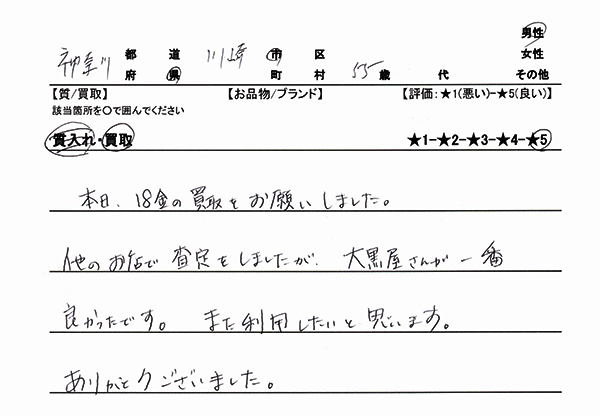 男性
神奈川 都 道 川崎 市 区 女性
府 県 町 村 55 歳 代 その他
【質/買取】 【お品物/ブランド】 【評価:★1(悪い)-★5(良い)】
該当箇所を〇で囲んでください
質入れ・買取 ★1-★2-★3-★4-★5
本日、18金の買取をお願いしました。
他のお店で査定をしましたが、大黒屋さんが一番
良かったです。また利用したいと思います。
ありがとうございました。